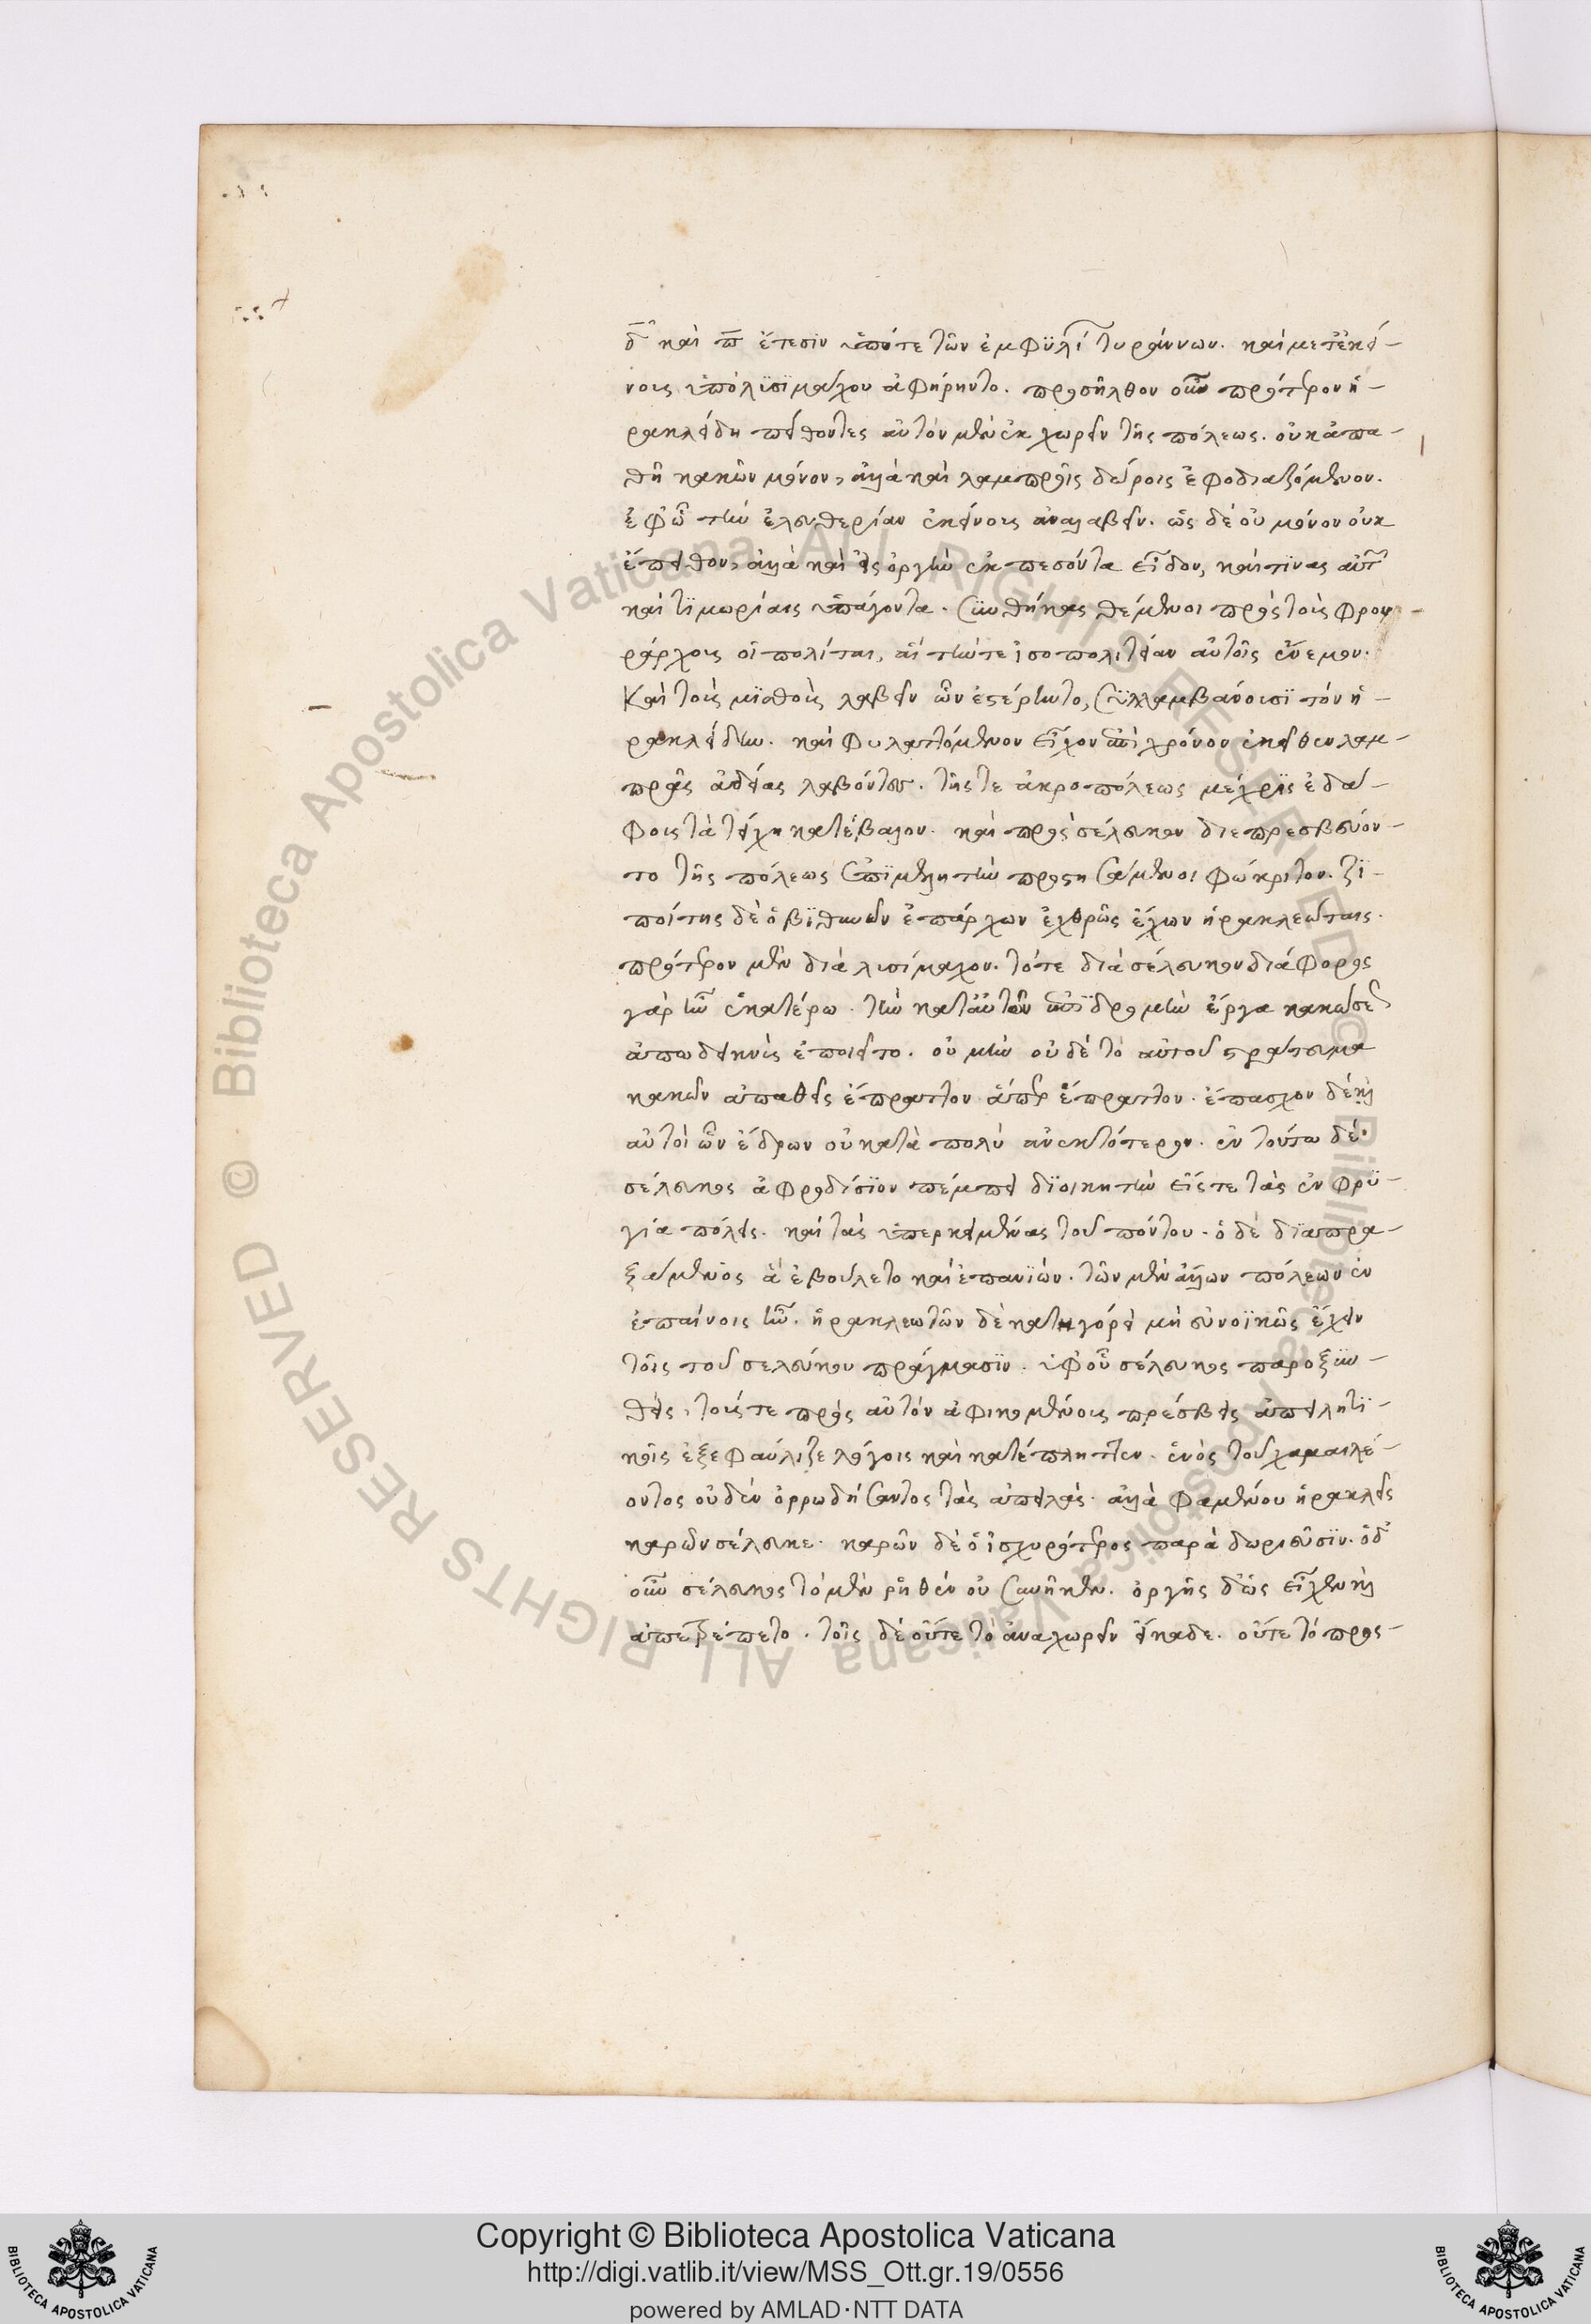 δ̅ καὶ π̅ ἔτεσϊν ὑπό τε τῶν ἐμφϋλί τυράννων. καὶ μετ' ἐκεί-
νοις ὑπὸ λϊσϊμάχου ἀφῄρηντο. προσῆλθον οὖν πρότερον ἡ-
ρακλείδη πείθοντες αὐτὸν μὲν ἐκχωρεῖν τῆς πόλεως. οὐκ ἀπα-
θῆ κακῶν μόνον, ἀλλὰ καὶ λαμπροῖς δώροις ἐφοδιαζόμενον.
ἐφ' ᾧ τὴν ἐλευθερίαν ἐκείνοις ἀναλαβεῖν. ὡς δὲ οὐ μόνον οὐκ
ἔπειθον, ἀλλὰ καὶ εἰς ὀργὴν ἐκπεσόντα εἶδον, καί τϊνας αὐτ
καὶ τϊμωρίαις ὑπάγοντα. Συνθήκας θέμενοι πρὸς τοὺς φρου-
ράρχους οἱ πολίται, αἳ τήν τε ἰσοπολιτείαν αὐτοῖς ἔνεμον.
Καὶ τοὺς μϊσθοὺς λαβεῖν ὧν ἐστέρηντο, Συλλαμβάνουσϊ τὸν ἡ-
ρακλείδην. καὶ φυλαττόμενον εἶχον ἐπὶ χρόνον ἐκεῖθεν λαμ-
πρᾶς ἀδείας λαβόντες. τῆς τε ἀκροπόλεως μέχρϊς ἐδά-
φους τὰ τείχη κατέβαλον. καὶ πρὸς σέλευκον διεπρεσβεύον-
το τῆς πόλεως ἐπϊμελητὴν προστησάμενοι φώκριτον. ζϊ-
ποίτης δὲ ὁ βϊθυνῶν ἐπάρχων ἐχθρῶς ἔχων ἡρακλεώταις.
πρότερον μὲν διὰ λυσίμαχον. τότε διὰ σέλευκον διάφορος
γὰρ ἦν ἑκατέρω. τὴν κατ' αὐτῶν ἐπϊδρομὴν ἔργα κακώσε
ἀποδεικνὺς ἐποιεῖτο. οὐ μὴν οὐδὲ τὸ αὐτοῦ στράτευμα
κακῶν ἀπαθεῖς ἔπραττον ἅπερ ἔπραττον. ἔπασχον δὲ καὶ
αὐτοὶ ὧν ἔδρων οὐ κατὰ πολὺ ἀνεκτότερον. ἐν τούτω δὲ
σέλευκος ἀφροδίσϊον πέμπει δϊοικητὴν εἴς τε τὰς ἐν φρϋ-
γία πόλεις. καὶ τὰς ὑπερκειμένας τοῦ πόντου. ὁ δὲ δϊαπρα-
ξάμενος ἃ ἐβούλετο καὶ ἐπανϊών. τῶν μὲν ἄλλων πόλεων ἐν
ἐπαίνοις ἦν. ἡρακλεωτῶν δὲ κατηγόρει μὴ εὐνοϊκῶς ἔχειν
τοῖς τοῦ σελεύκου πράγμασϊν. ὑφ' οὗ σέλευκος παροξϋν-
θείς, τούς τε πρὸς αὐτὸν ἀφικομένους πρέσβεις ἀπειλητϊ-
κοῖς ἐξεφαύλιζε λόγοις καὶ κατέπληττεν. ἑνὸς τοῦ χαμαιλέ-
οντος οὐδὲν ὀρρωδήσαντος τὰς ἀπειλάς. ἀλλὰ φαμένου ἡρακλῆς
κάρων σέλευκε. κάρων δὲ ὁ ἰσχυρότερος παρὰ δωριεῦσϊν. ὁ δ'
οὖν σέλευκος τὸ μὲν ῥηθὲν οὐ Συνῆκεν. ὀργῆς δ' ὡς εἶχεν καὶ
ἀπετρέπετο. τοῖς δὲ οὔτε τὸ ἀναχωρεῖν οἴκαδε. οὔτε τὸ προς-
Copyright © Biblioteca Apostolica Vaticana
http://digi.vatlib.it/view/MSS_Ott.gr.19/0556
powered by AMLAD·NTT DATA